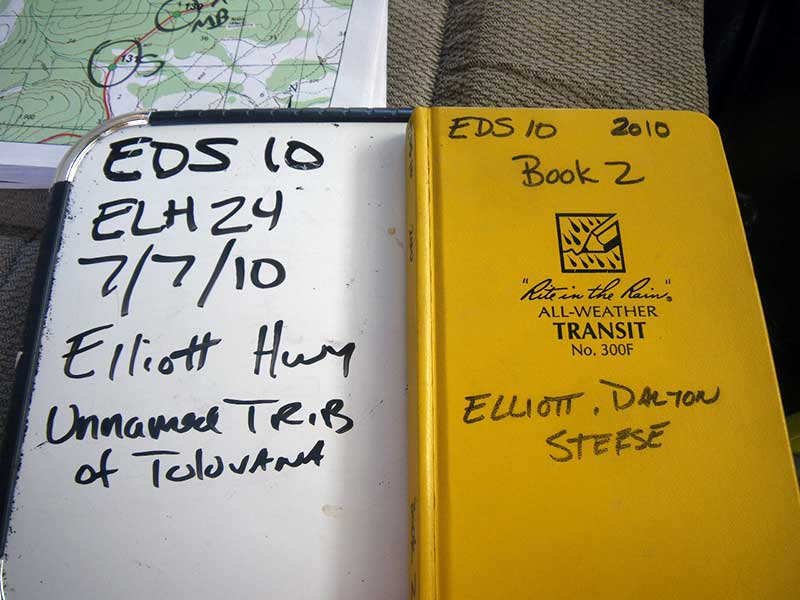 131
S
MB
N
EDS 10
ELH 24
7/7/10
Elliott Hwy
Unnamed TRIB
of TOLOVANA
EDS 10 2010
Book 2
"Rite in the Rain"®
ALL-WEATHER
TRANSIT
No. 300F
ELLIOTT, DALTON
STEESE